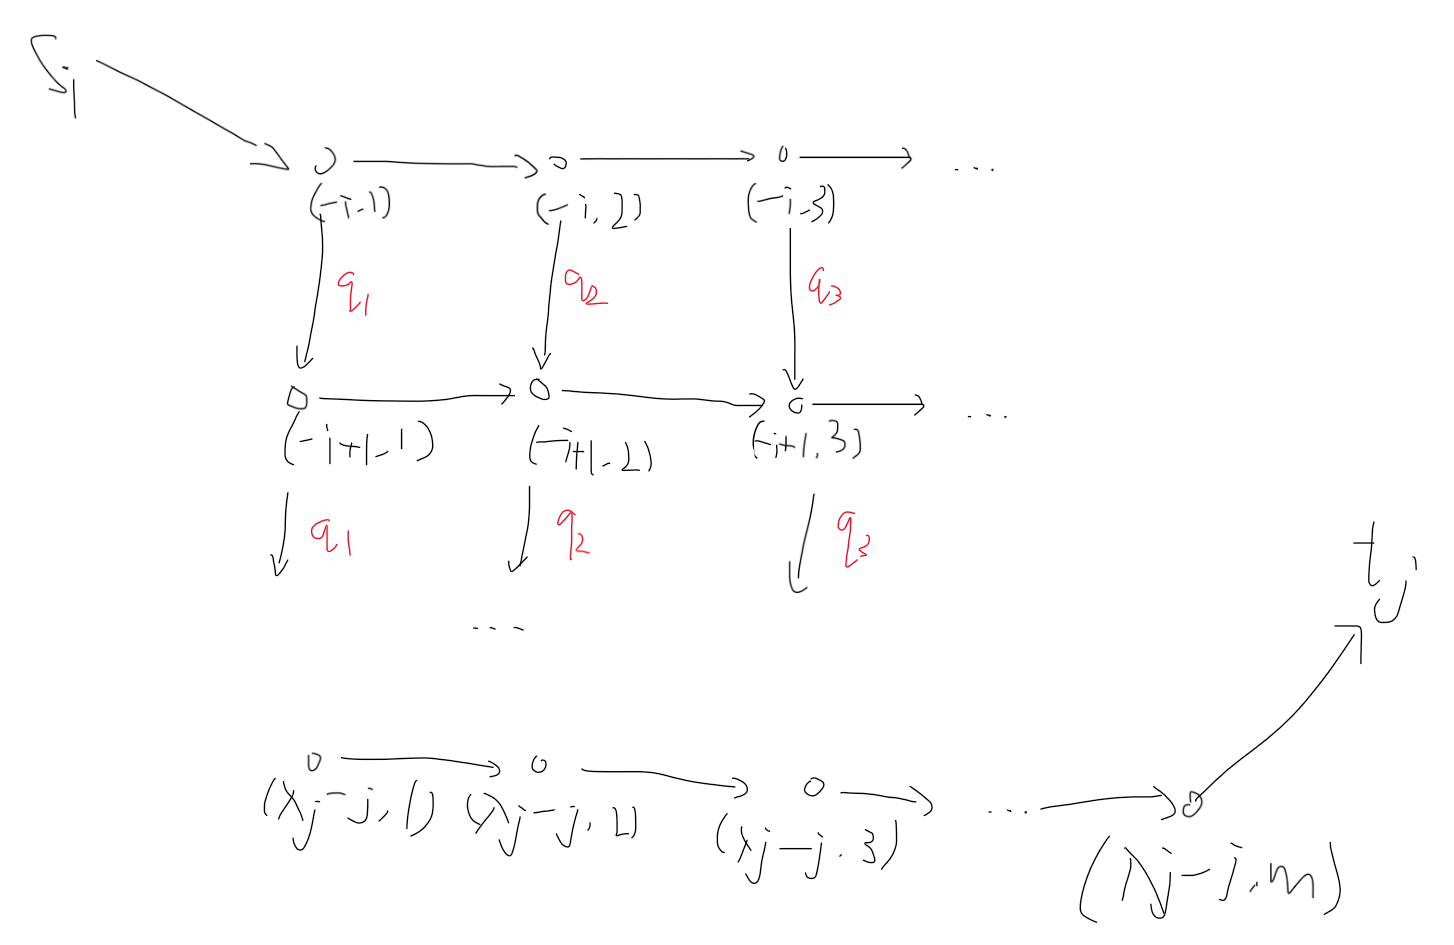 i
(-i,1) (-i,2) (-i,3) ...
q1 q2 q3
(-i+1,1) (-i+1,2) (-i+1,3) ...
q1 q2 q3
tj
...
...
(λj-j,1) (λj-j,2) (λj-j,3)
(λj-j,m)